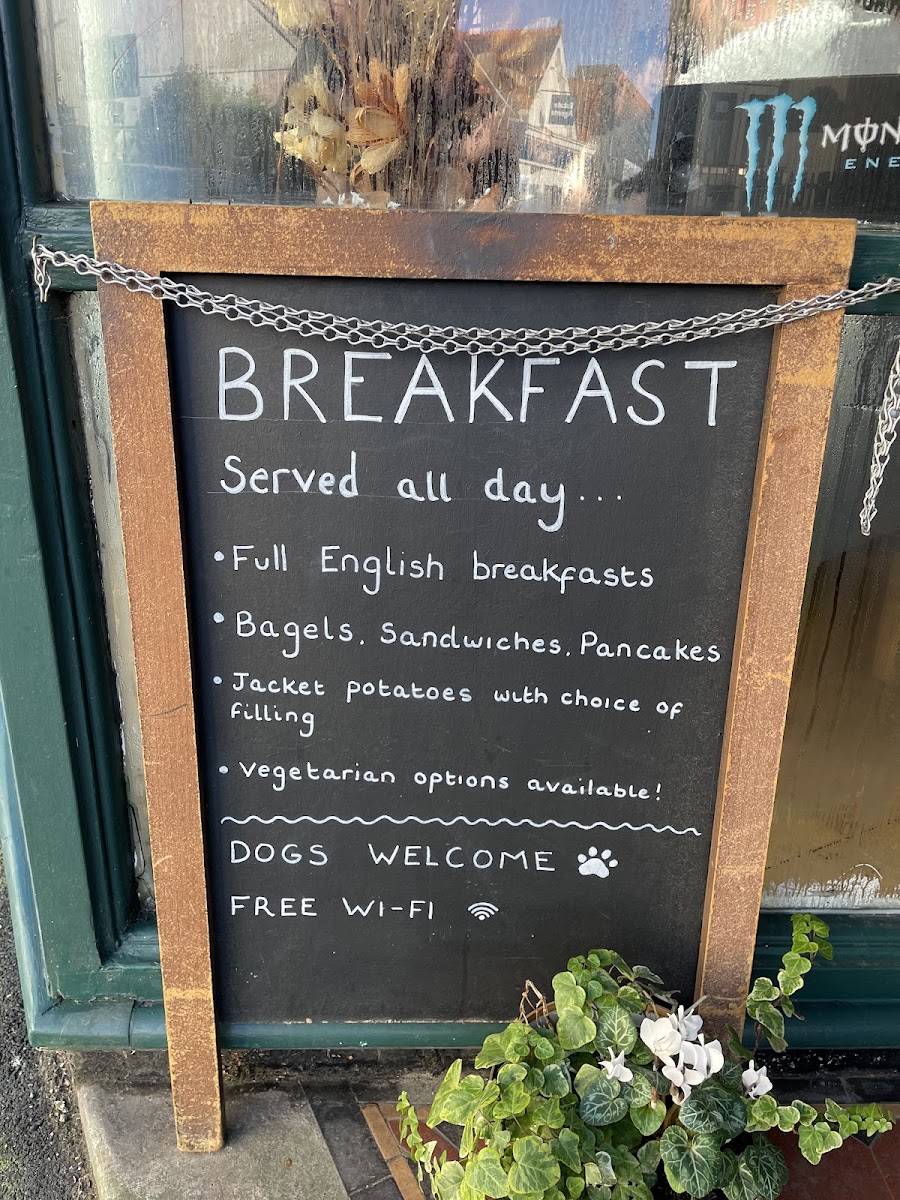 MON
ENE
BREAKFAST
Served all day...
• Full English breakfasts
• Bagels, Sandwiches, Pancakes
• Jacket potatoes with choice of
filling
• Vegetarian options available!
DOGS WELCOME
FREE WI-FI